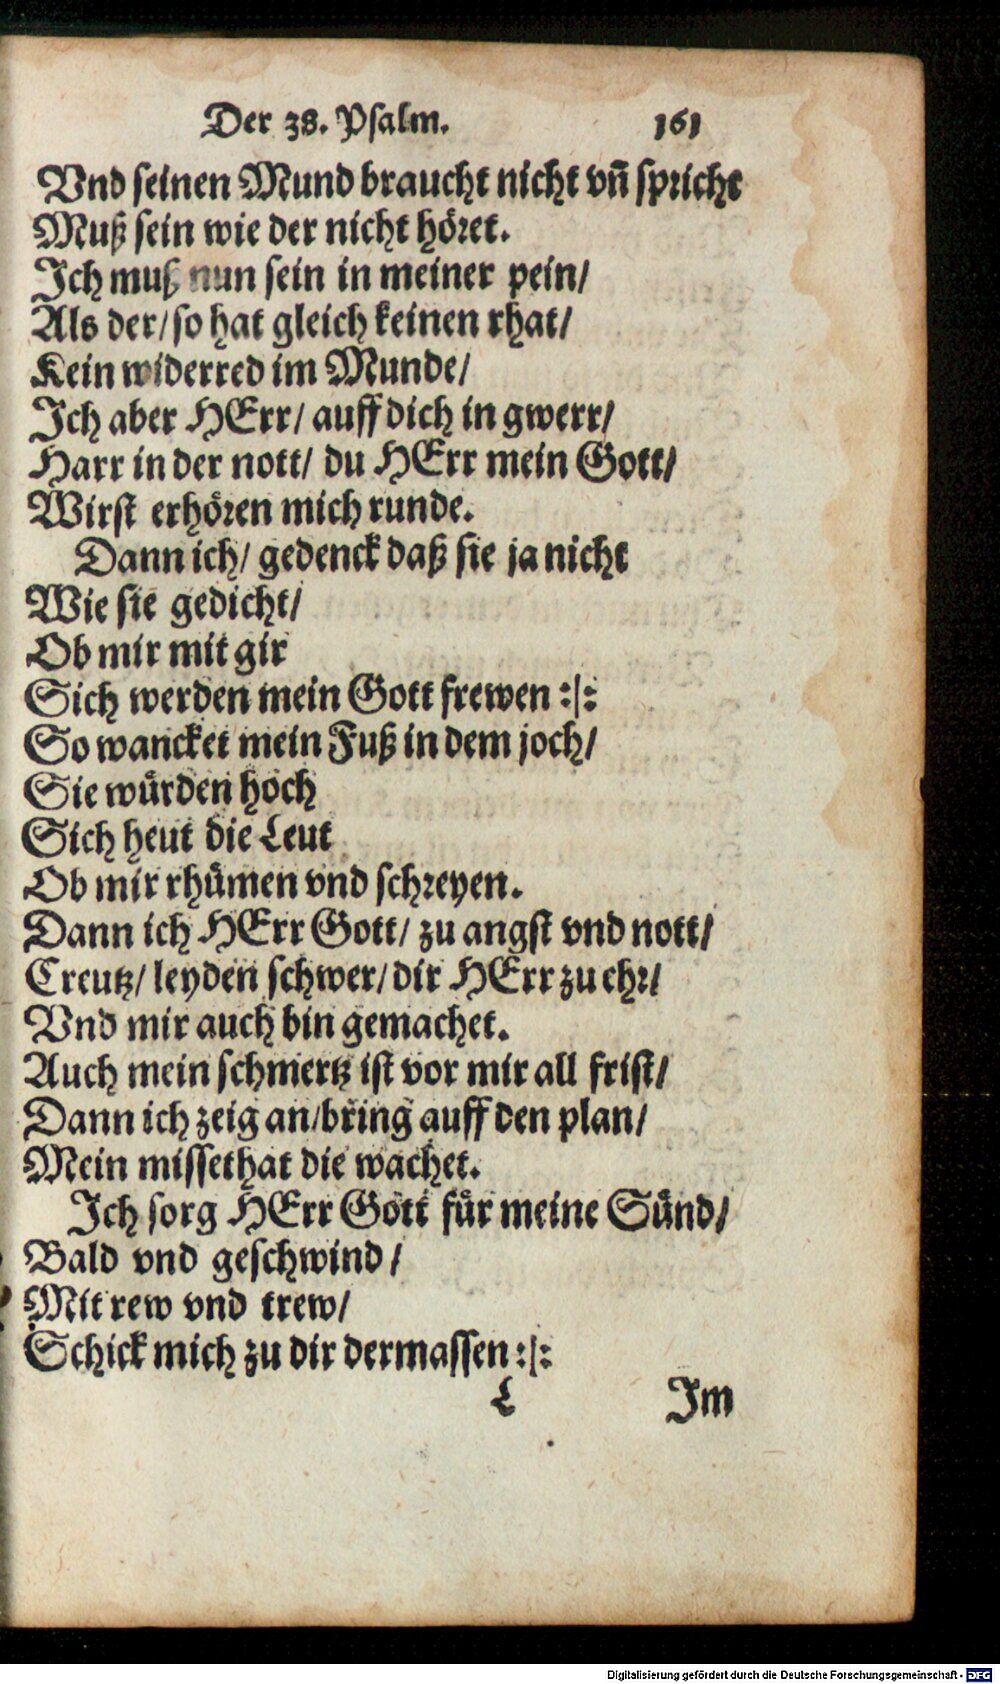 Der 38. Psalm. 161
Vnd seinen Mund braucht nicht vn̄ spricht
Muß sein wie der nicht höret.
Ich muß nun sein in meiner pein/
Als der/ so hat gleich keinen rhat/
Kein widerred im Munde/
Ich aber HErr/ auff dich in gwerr/
Harr in der nott/ du HErr mein Gott/
Wirst erhören mich runde.
Dann ich/ gedenck daß sie ja nicht
Wie sie gedicht/
Ob mir mit gir
Sich werden mein Gott frewen :|:
So wancket mein Fuß in dem joch/
Sie würden hoch
Sich heut die Leut
Ob mir rhümen vnd schreyen.
Dann ich HErr Gott/ zu angst vnd nott/
Creutz/ leyden schwer/ dir HErr zu ehr/
Vnd mir auch bin gemachet.
Auch mein schmertz ist vor mir all frist/
Dann ich zeig an/bring auff den plan/
Mein missethat die wachet.
Ich sorg HErr Gott für meine Sünd/
Bald vnd geschwind/
Mit rew vnd trew/
Schick mich zu dir dermassen :|:
L Im
Digitalisierung gefördert durch die Deutsche Forschungsgemeinschaft - DFG